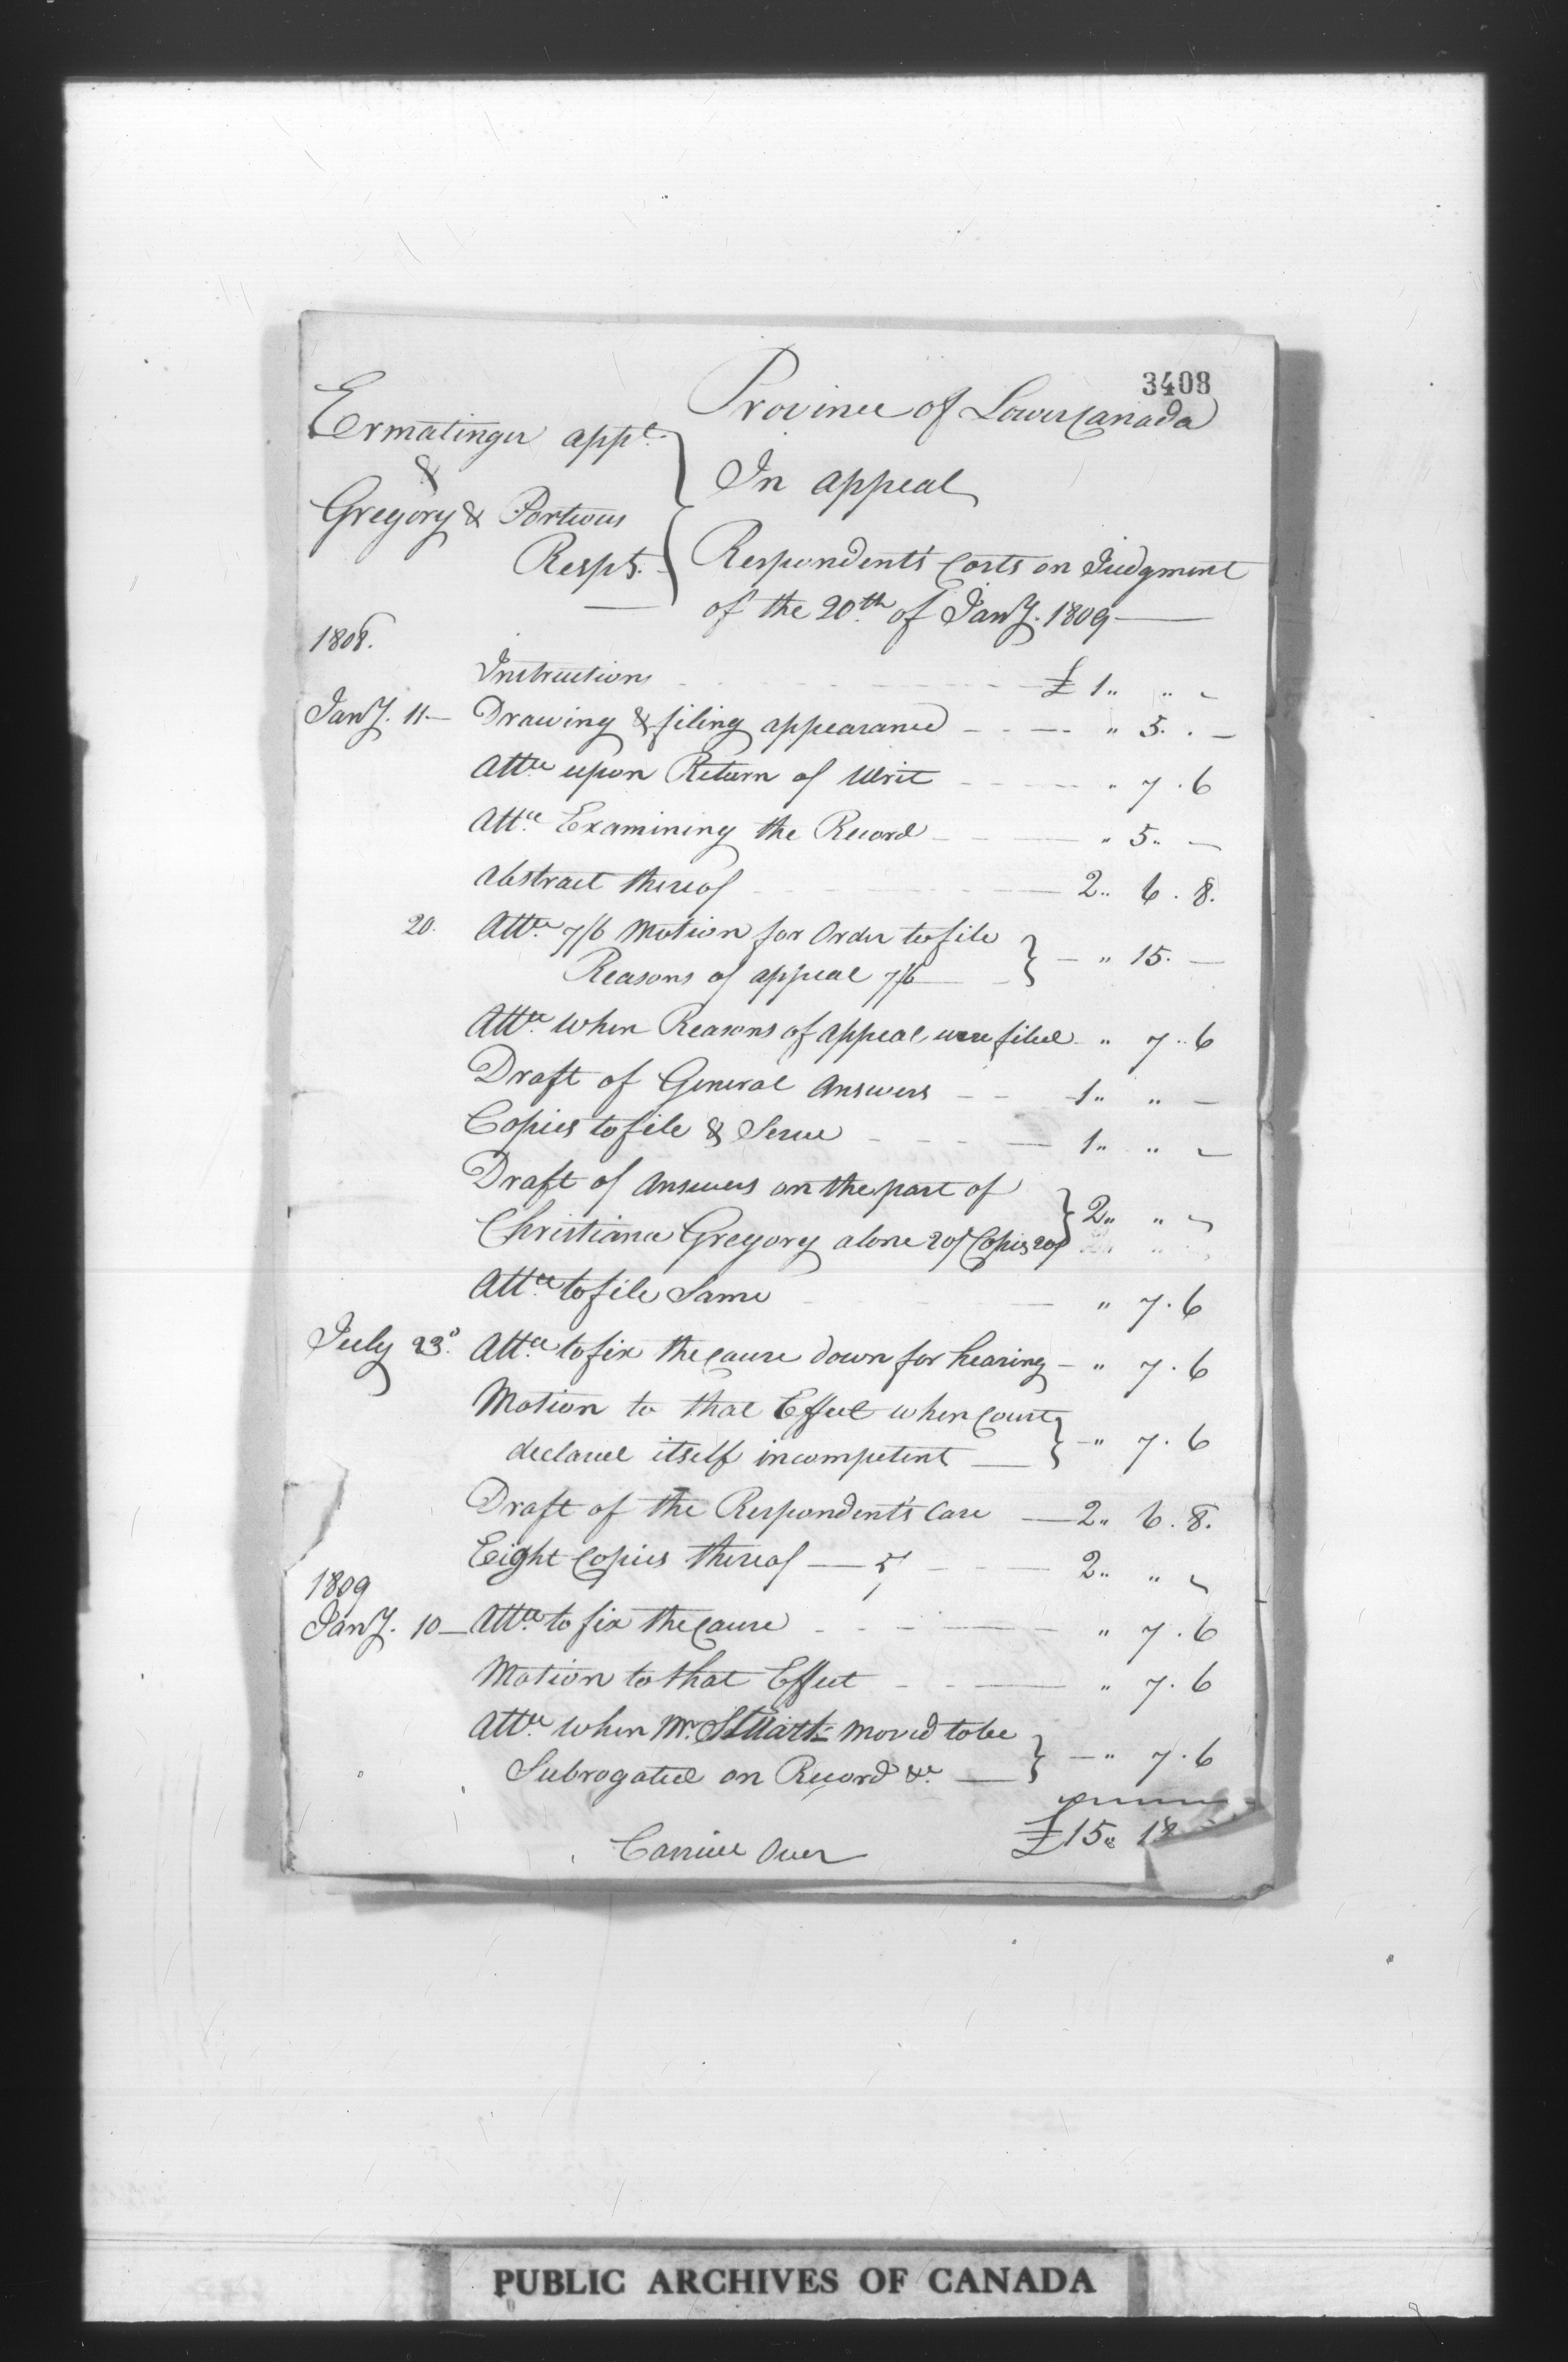 3408
Province of Lower Canada
Ermatinger appt.
&
Gregory & Porteous
Respts.
In appeal
Respondent's Costs on Judgment
of the 20th of Jany. 1809
1808.
Instructions £ 1 " " -
Jany. 11 - Drawing & filing appearance " 5 . -
Attce upon Return of Writ " 7 . 6
Attce Examining the Record " 5 " -
Abstract thereof 2 " 6 . 8.
20. Attce 7/6 Motion for Order to file
Reasons of appeal 7/6 " 15 . -
Attce when Reasons of appeal were filed " 7 " 6
Draft of General Answers 1 " " -
Copies to file & Serve 1 " " -
Draft of Answers on the part of
Christiana Gregory alone 20/ Copies 20/ 2 " " -
Attce to file Same " 7 . 6
July 23d. Attce to fix the Cause down for hearing - " 7 . 6
Motion to that Effect when Court
declared itself incompetent " 7 . 6
Draft of the Respondent's Case 2 " 6 . 8.
Eight Copies thereof 5/ 2 " " -
1809
Jany. 10 - Attce to fix the Cause " 7 . 6
Motion to that Effect " 7 . 6
Attce when Mr. Stuart moved to be
Subrogated on Record &c. " 7 . 6
£ 15 " 18
Carried Over
PUBLIC ARCHIVES OF CANADA